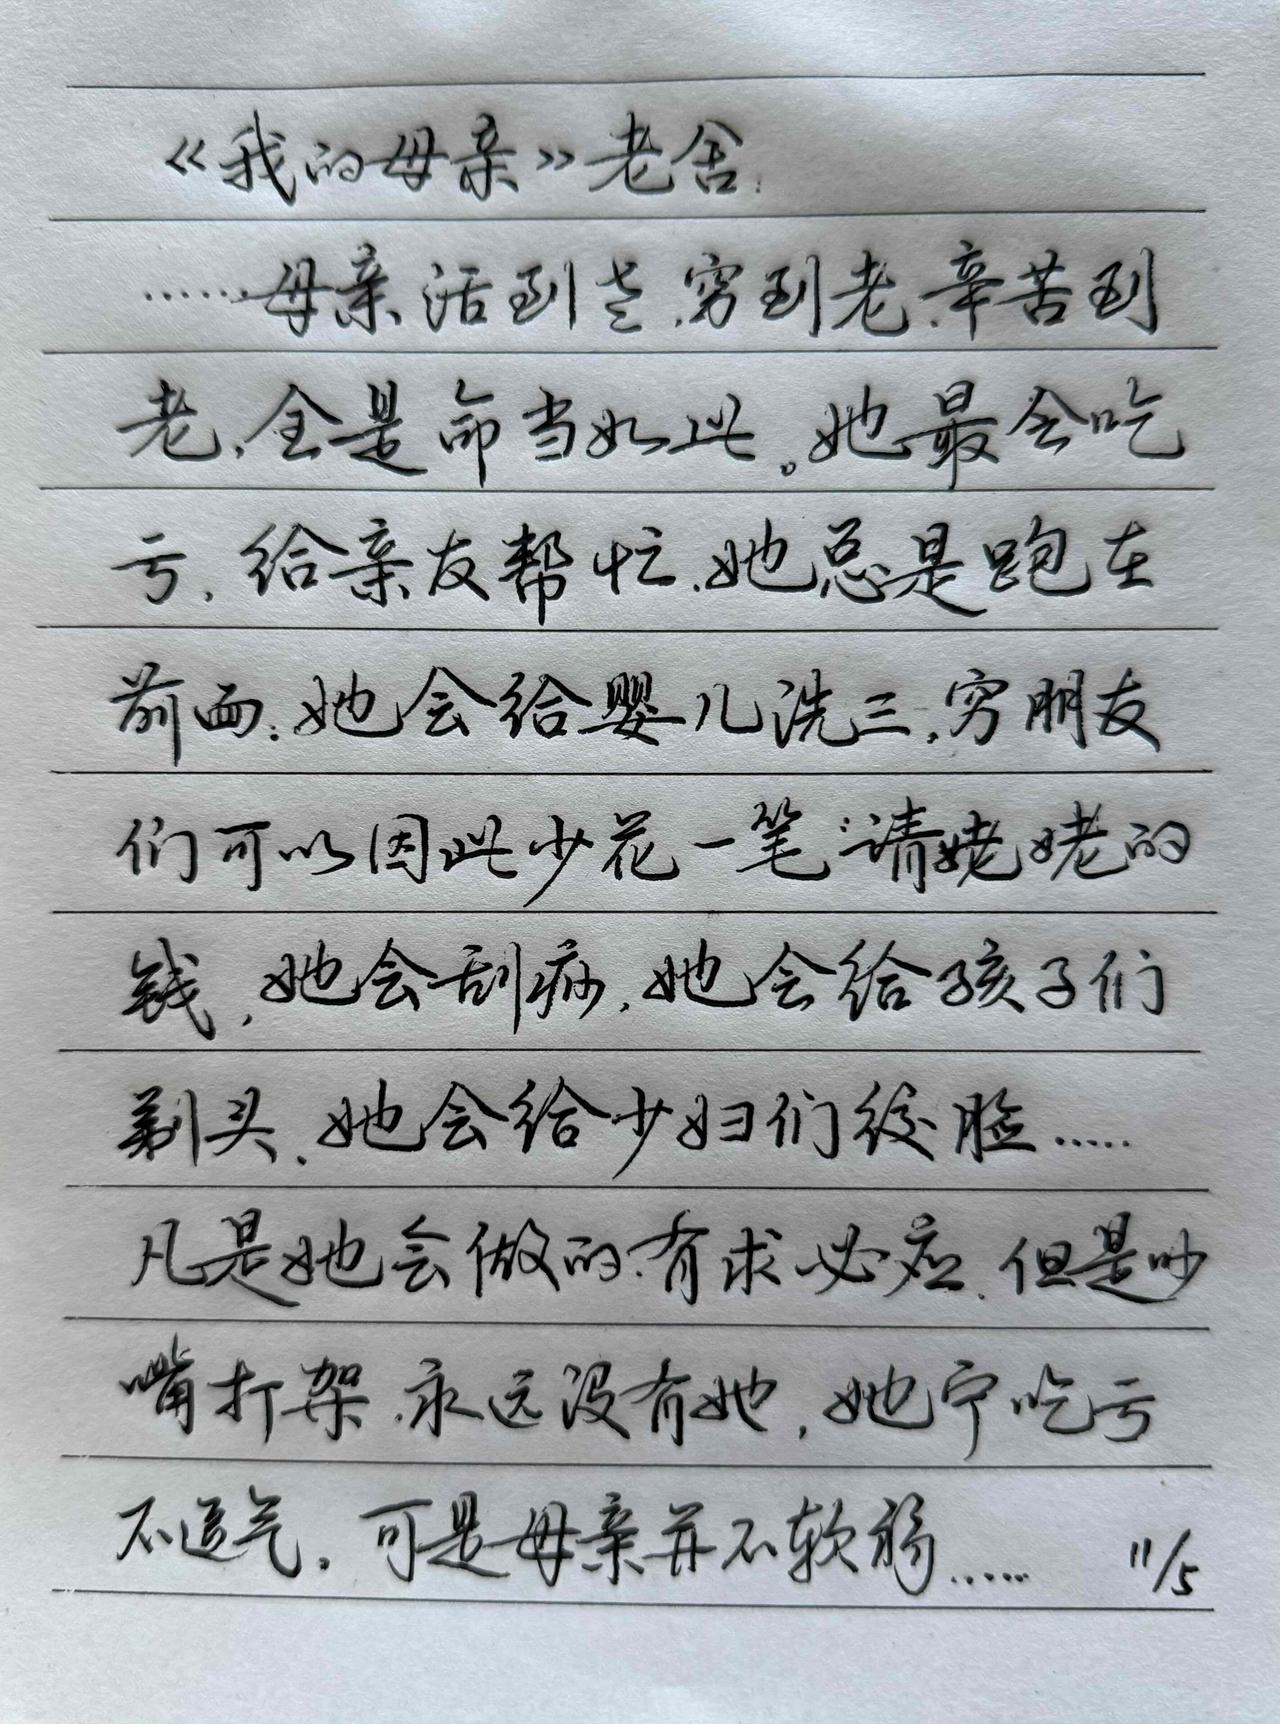 《我的母亲》老舍:
……母亲活到老,穷到老,辛苦到
老,全是命当如此。她最会吃
亏,给亲友帮忙,她总是跑在
前面:她会给婴儿洗三,穷朋友
们可以因此少花一笔“请姥姥的
钱,她会刮痧,她会给孩子们
剃头,她会给少妇们绞脸……
凡是她会做的,有求必应,但是吵
嘴打架,永远没有她,她宁吃亏
不逗气,可是母亲并不软弱…… 11/5